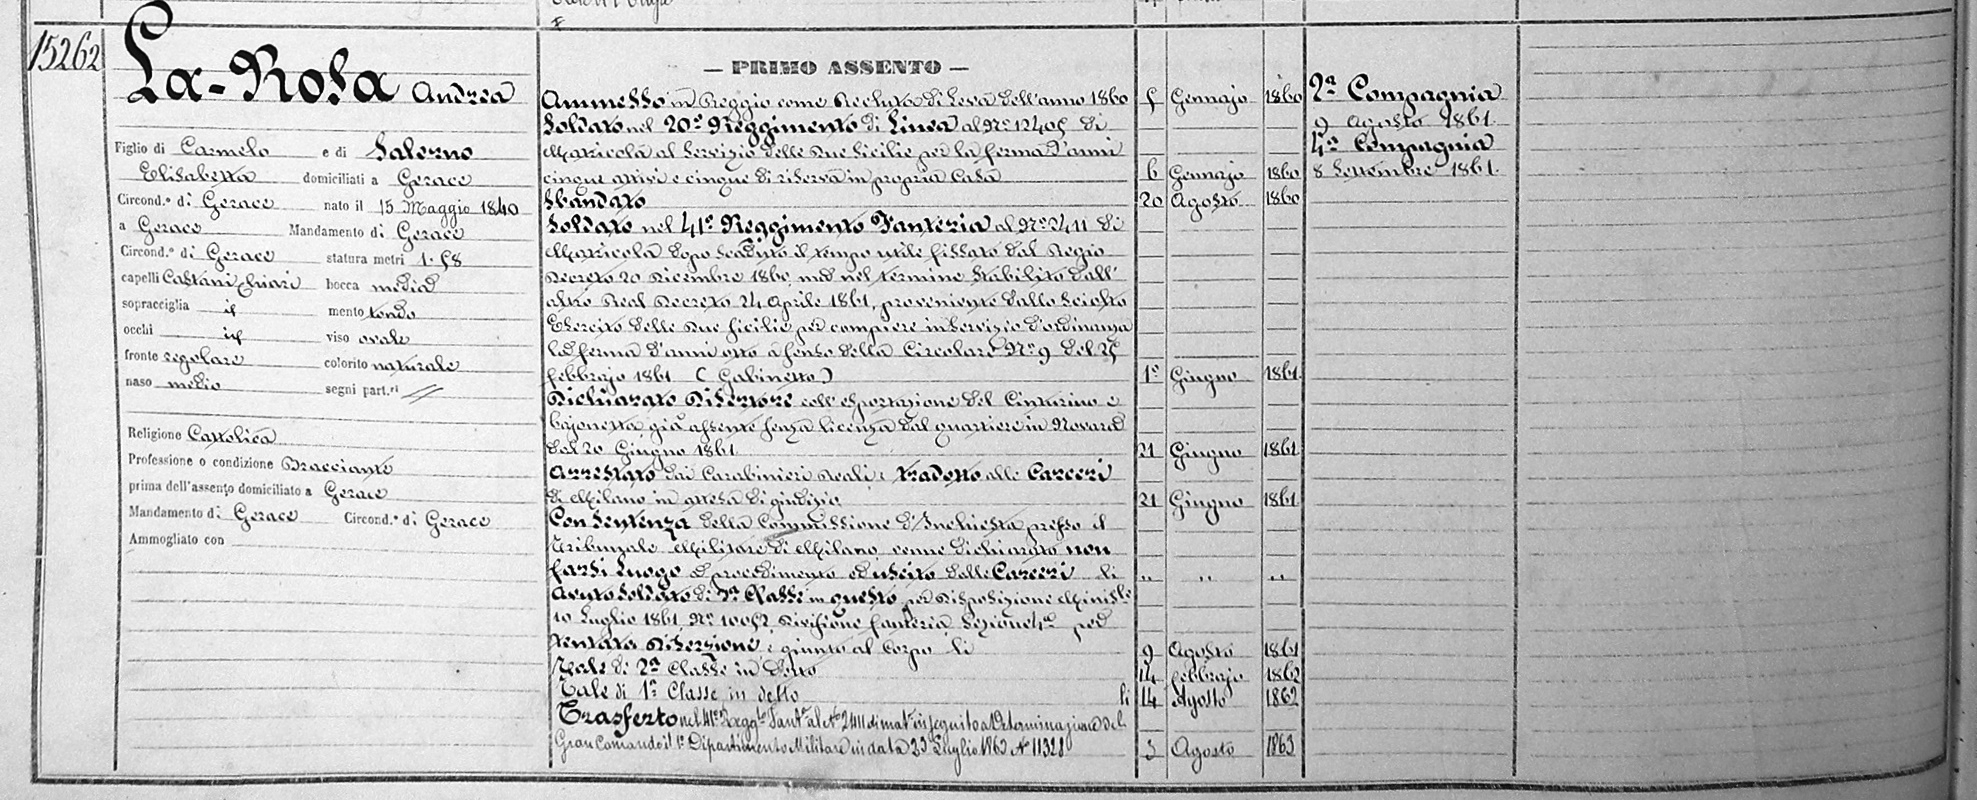 15262
La-Rosa Andrea
Figlio di Carmelo e di Salerno
Elisabetta domiciliati a Gerace
Circond.º di Gerace nato il 15 Maggio 1840
a Gerace Mandamento di Gerace
Circond.º di Gerace statura metri 1.58
capelli Castani chiari bocca media
sopracciglia il mento tondo
occhi viso ovale
fronte regolare colorito naturale
naso medio segni part.ri //
Religione Cattolica
Professione o condizione Bracciante
prima dell'assento domiciliato a Gerace
Mandamento di Gerace Circond.º di Gerace
Ammogliato con
— PRIMO ASSENTO —
Ammesso in Reggio come Recluta di Leva dell'anno 1860 5 Gennajo 1860
Soldato nel 20º Reggimento di Linea al Nº 12405 di
Matricola al Servizio delle Due Sicilie per la ferma d'anni
cinque attivi e cinque di riserva in propria Casa 6 Gennajo 1860
Sbandato 20 Agosto 1860
Soldato nel 41º Reggimento Fanteria al Nº 2411 di
Matricola dopo scaduto il tempo utile fissato dal Regio
Decreto 20 Dicembre 1860, ma nel termine stabilito dall'
altro Real Decreto 24 Aprile 1861, proveniente dallo sciolto
Esercito delle Due Sicilie per compiere in servizio d'ordinanza
la ferma d'anni otto a senso della Circolare Nº 9 del 25
febbrajo 1861 (Gabinetto) 1º Giugno 1861
Dichiarato Disertore coll'esportazione del Cinturino e
bajonetta già assente senza licenza dal quartiere in Novara
dal 20 Giugno 1861 21 Giugno 1861
Arrestato dai Carabinieri Reali e tradotto alle Carceri
di Milano in attesa di giudizio 21 Giugno 1861
Con Sentenza della Commissione d'Inchiesta presso il
Tribunale Militare di Milano, venne dichiarato non
farsi luogo a procedimento ed uscito dalle Carceri li „ „ „
Avuto Soldato di 3ª Classe in questo per Disposizione Minist.le
10 Luglio 1861, Nº 10052, Divisione fanteria, Sezione 4ª per
tentata Diserzione e giunto al Corpo li 9 Agosto 1861
Tale di 2ª Classe in detto 14 febbrajo 1862
Tale di 1ª Classe in detto li 14 Agosto 1862
Trasferto nel 41º Regg.to Fant.ª al Nº 2411 di mat.ª in seguito a Determinazione del
Gran Comando il 1º Dipartimento Militare in data 23 Luglio 1863 Nº 11328 3 Agosto 1863
2ª Compagnia
9 Agosto 1861
4ª Compagnia
8 Settembre 1861